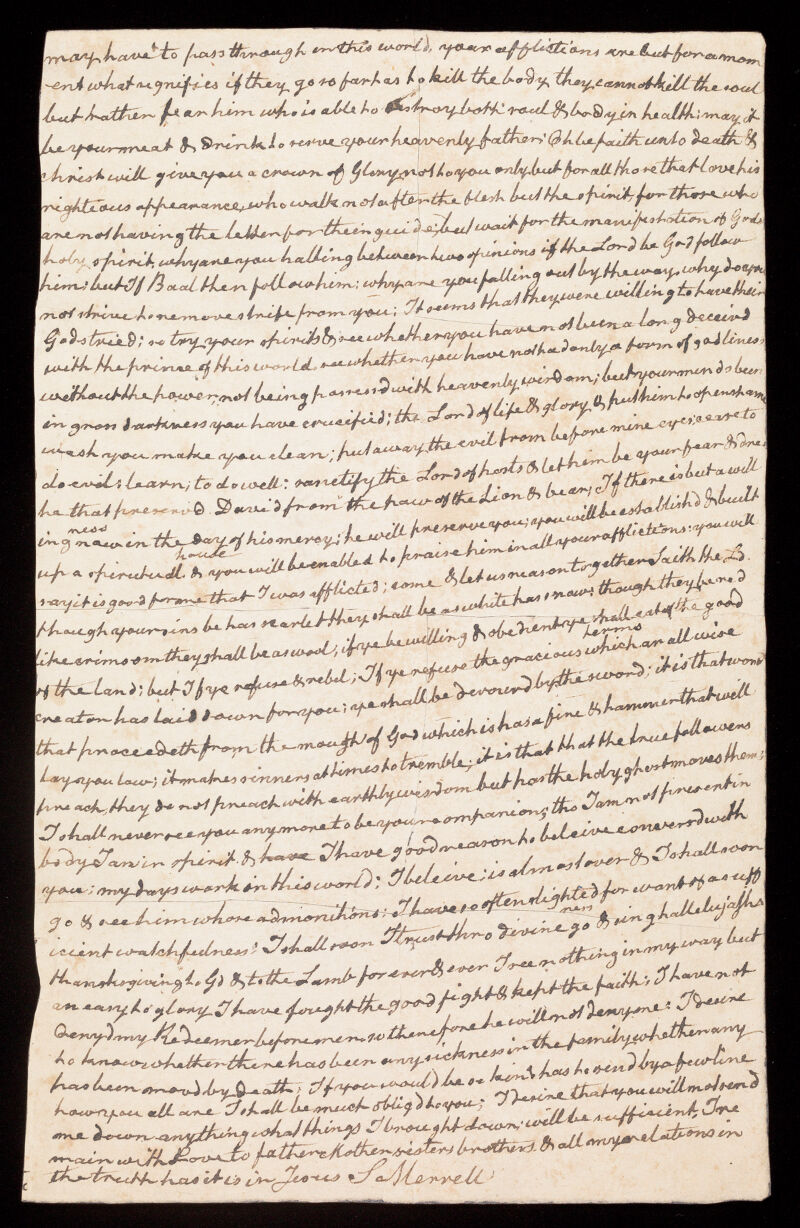 may have to pass through in this world, your afflictions are but for a mom
ent what signifies if they go so far has to kill the body they cannot kill the soul
but rather fear him who is able to destroy both soul & body in health: may it
be your meat & drink to serve your heavenly father: Oh be faith unto death &
christ will give you a crown of Glory, not to you only but for all those that love his
righteous appearance, who walk not after the flesh but the spirit, for those who
are not having the letter for their guide; but wait for the manifestation of Gods
holy spirit, why are you halling between two opinions if the Lord be God follow
him; but If Baal then follow him: why are you falling out by the way, why do you
not strive to remove strife from you; It seems that they were willing to have their
Gods tried; so try your spirits & see whether you have not been a long deceivd
with the prince of this world see whether you have not had only a form of godliness
without the power, not being possessd with heavenly wisdom; but your minds been
in gross darkness you have crucified; the Lord of life & glory & put him to open shame
wash you make you clean; put away the evil from before mine eyes; cease to
do evil; learn; to do well: sanctify the Lord of hosts & let him be your fear & dre
he that preservd David from the paw of the Lion & bear; If there is but a will
ingness now in the day of his mercy; he will preserve you; you will be establishd & built
up a spiritual house & you will be enabled to praise him in all your afflictions: you will
say it is good for me that I was afflicted; come & let us reason together Saith the Ld.
though your sins be has scarlet they shall be as white has snow; though they be red
like crimsom they shall be as wool; if ye be willing & obedient ye shall eat of the good
of the land; but If ye refuse & rebel; If ye refuse the gracious terms which an all wise
creator has laid down for you; ye shall be devourd by the sword; it is that word
that proceedeth from the mough of God which is has a fire & hammer that will
lay you low; it makes sinners at times to tremble; it is that that the true followers
preach, they do not preach with earthly wisdom but has the holy ghost moves them;
I shall never see you any more to be your companion; tho I am not present in
body I am in spirit & have I have good reason to beleive conversd with
you: my days work in this world; I beleive; is almost over & I shall soon
go & see him whose admonitions: I have so often slighted for want of a suff
icient watchfedness: I shall soon I trust thro divine go & sing hallelujahs
thanksgiving to Gd & to the Lamb for ever & ever I see nothing in my way but
an easy to glory I have fought the good fight & kept the faith; I have not
denyd my Redeemer before men so therefore he will not deny me: I desire
to know whether there has been any sickness in the family whether any
has been movd by death; If you would be so kind has to send by a few line
how you all are I shall be much obligd to you; I desire that you will not send
me down any thing what things I brought down; will be sufficient, I re
main with Love to father Mother sisters brothers & all my relations in
the truth has it is in Jesus S Merrell